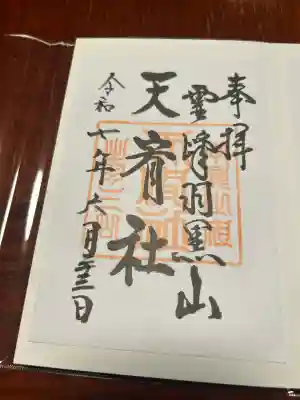 奉拝
霊峰羽黒山
天宥社
令和七年六月廿三日